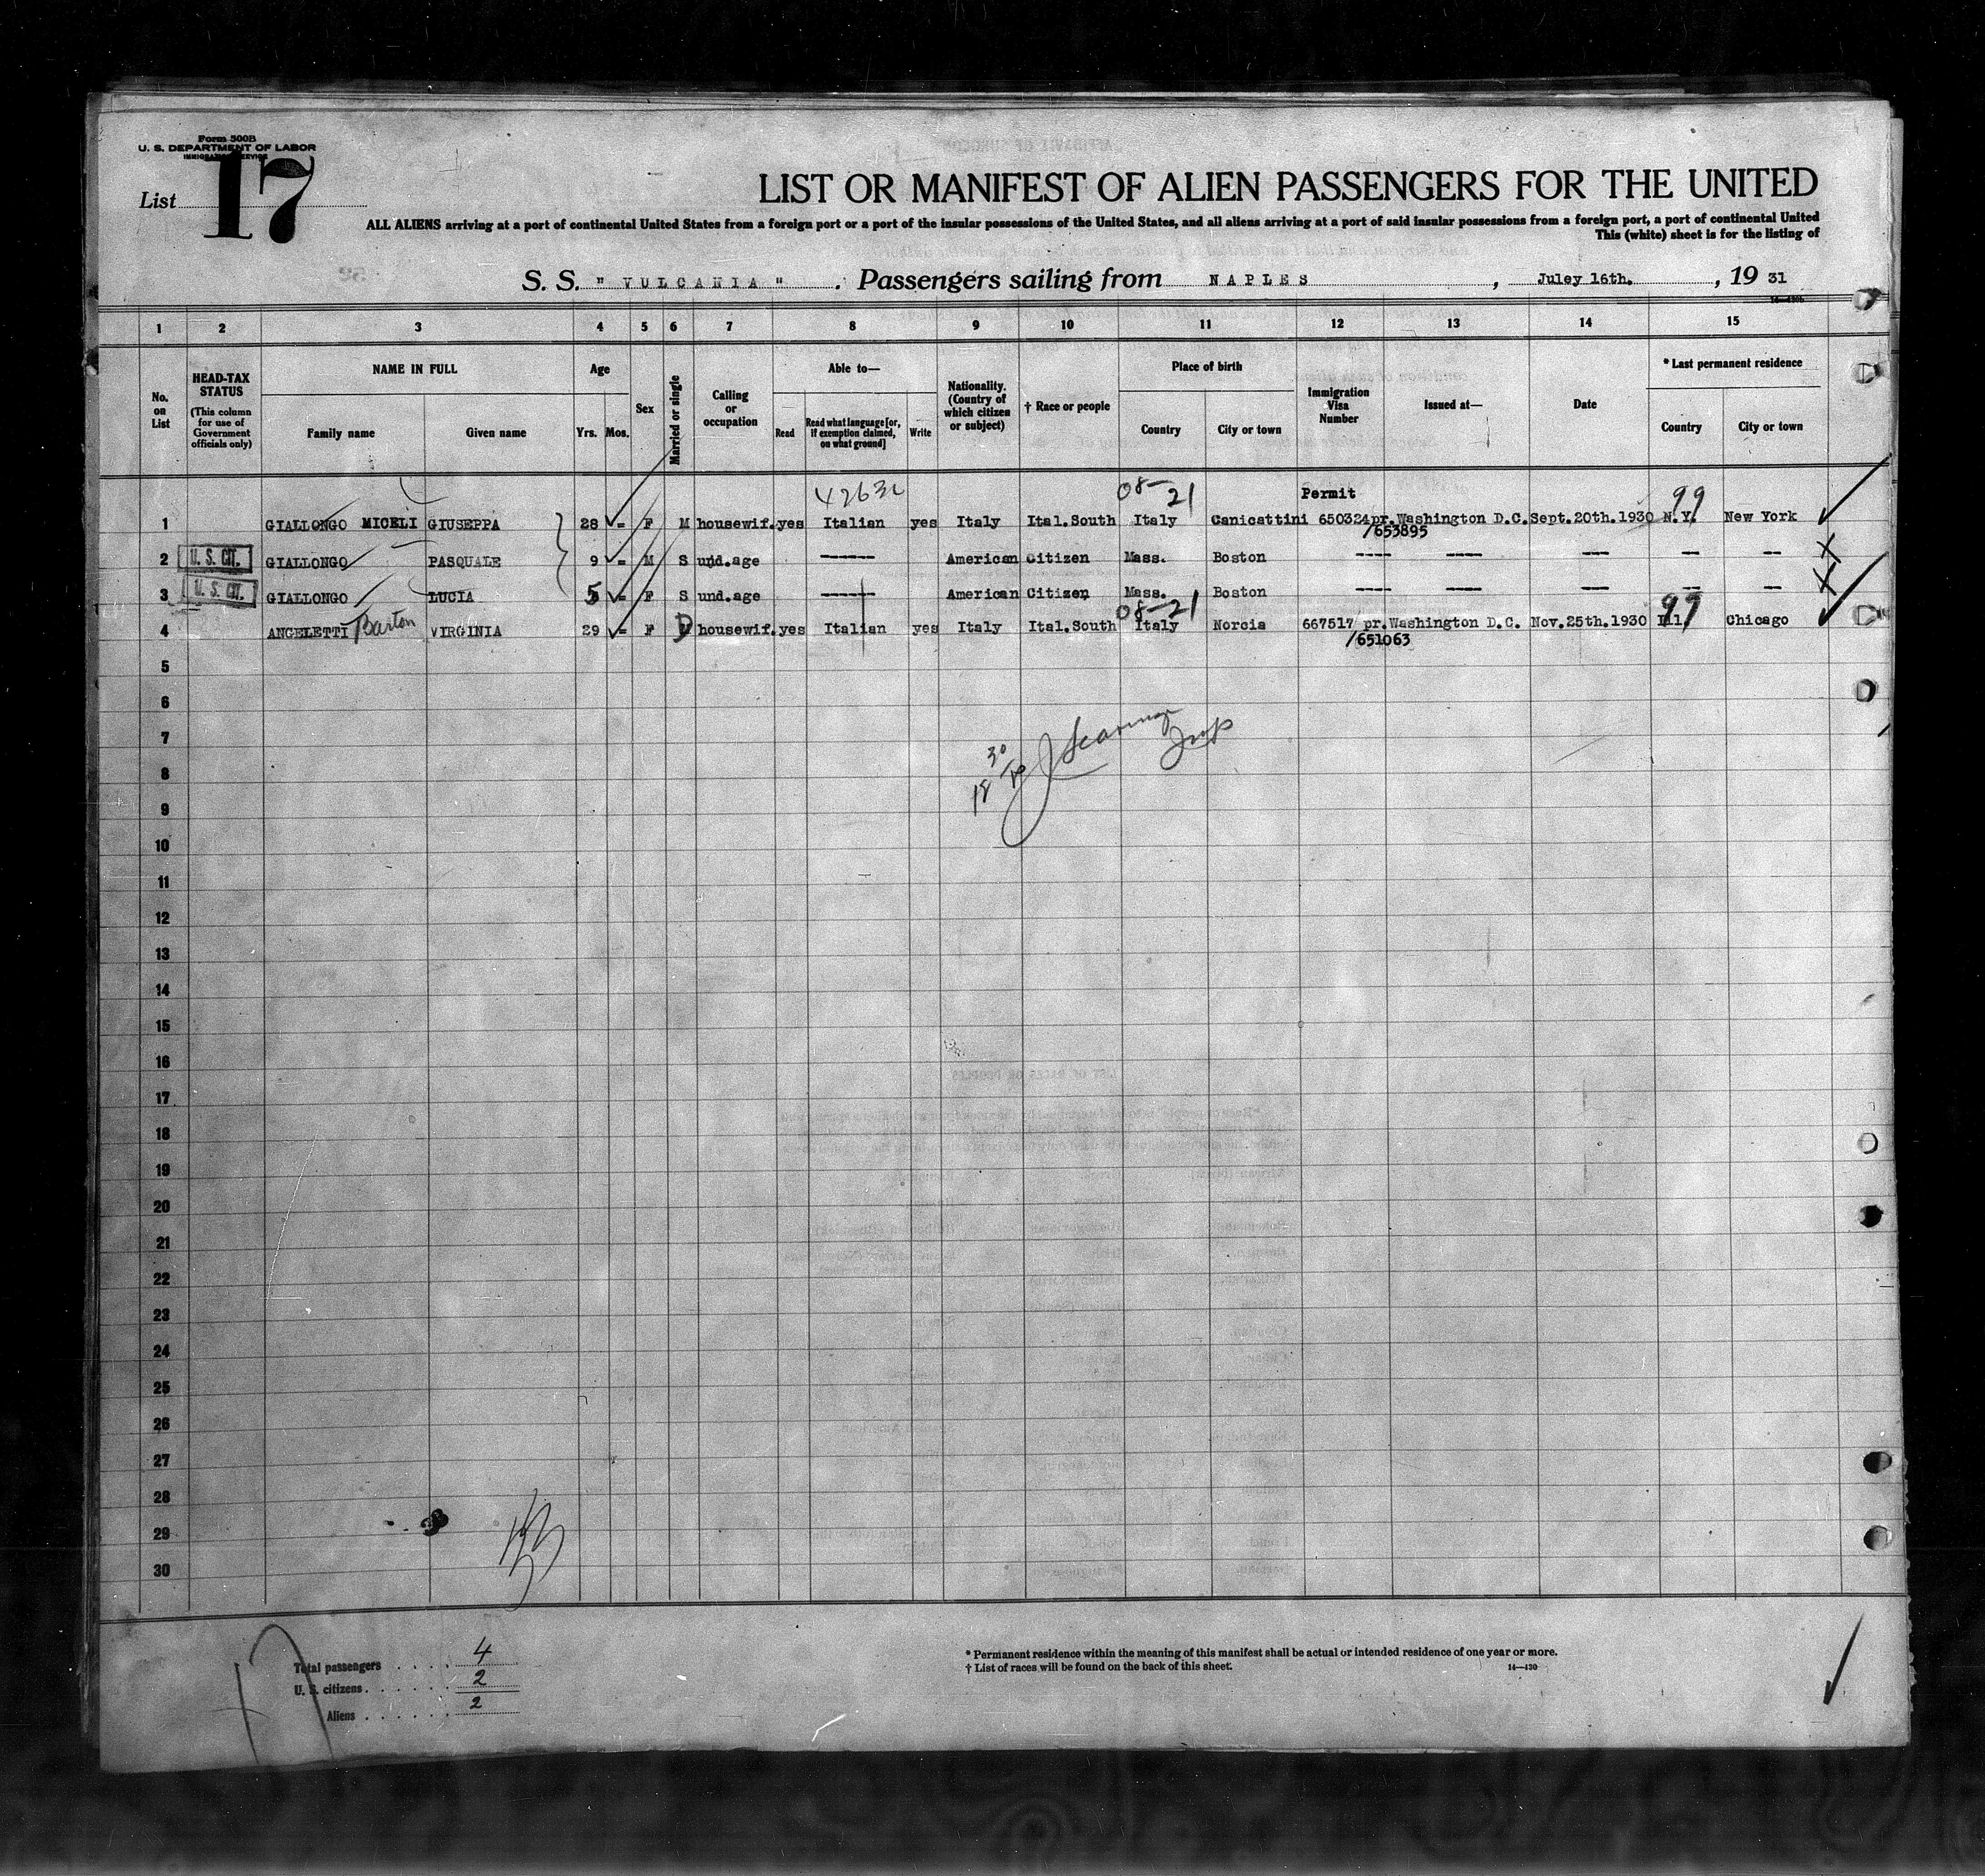 Form 500B
U. S. DEPARTMENT OF LABOR
IMMIGRATION SERVICE
List 17
LIST OR MANIFEST OF ALIEN PASSENGERS FOR THE UNITED
ALL ALIENS arriving at a port of continental United States from a foreign port or a port of the insular possessions of the United States, and all aliens arriving at a port of said insular possessions from a foreign port, a port of continental United
This (white) sheet is for the listing of
S. S. "VULCANIA". Passengers sailing from NAPLES, Juley 16th., 19 31
1 2 3 4 5 6 7 8 9 10 11 12 13 14 15
No. on List
HEAD-TAX STATUS
(This column for use of Government officials only)
NAME IN FULL
Family name Given name
Age
Yrs. Mos.
Sex
Married or single
Calling or occupation
Able to—
Read Read what language [or, if exemption claimed, on what ground] Write
Nationality. (Country of which citizen or subject)
† Race or people
Place of birth
Country City or town
Immigration Visa Number
Issued at—
Date
* Last permanent residence
Country City or town
08-21 Permit 99
1 GIALLONGO MICELI GIUSEPPA 28 - F M housewif. yes Italian yes Italy Ital.South Italy Canicattini 650324 pr. Washington D.C. Sept.20th.1930 N.Y. New York
/653895
2 U. S. CIT. GIALLONGO PASQUALE 9 - M S und.age ----- American Citizen Mass. Boston ---- ---- -- -- --
3 U. S. CIT. GIALLONGO LUCIA 5 - F S und.age ----- American Citizen Mass. Boston ---- ---- -- -- --
08-21 99
4 ANGELETTI Barton VIRGINIA 29 - F D housewif. yes Italian yes Italy Ital.South Italy Norcia 667517 pr. Washington D.C. Nov.25th.1930 Ill. Chicago
/651063
5
6
7
8
9
10
11
12
13
14
15
16
17
18
19
20
21
22
23
24
25
26
27
28
29
30
Total passengers . . . . 4
U. S. citizens . . . . . . 2
Aliens . . . . . . 2
* Permanent residence within the meaning of this manifest shall be actual or intended residence of one year or more.
† List of races will be found on the back of this sheet.
14—430